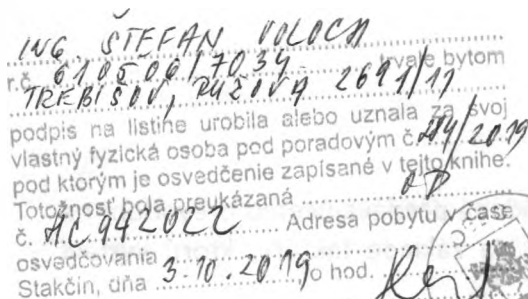 ING. ŠTEFAN VOLOCH
r.č. 610506/7034 trvale bytom
TREBIŠOV, RUŽOVÁ 2691/11
podpis na listine urobila alebo uznala za svoj
vlastný fyzická osoba pod poradovým č. /2019
pod ktorým je osvedčenie zapísané v tejto knihe.
Totožnosť bola preukázaná OP
č. HC 942022 Adresa pobytu v čase
osvedčovania
Stakčín, dňa 3.10.2019 o hod.